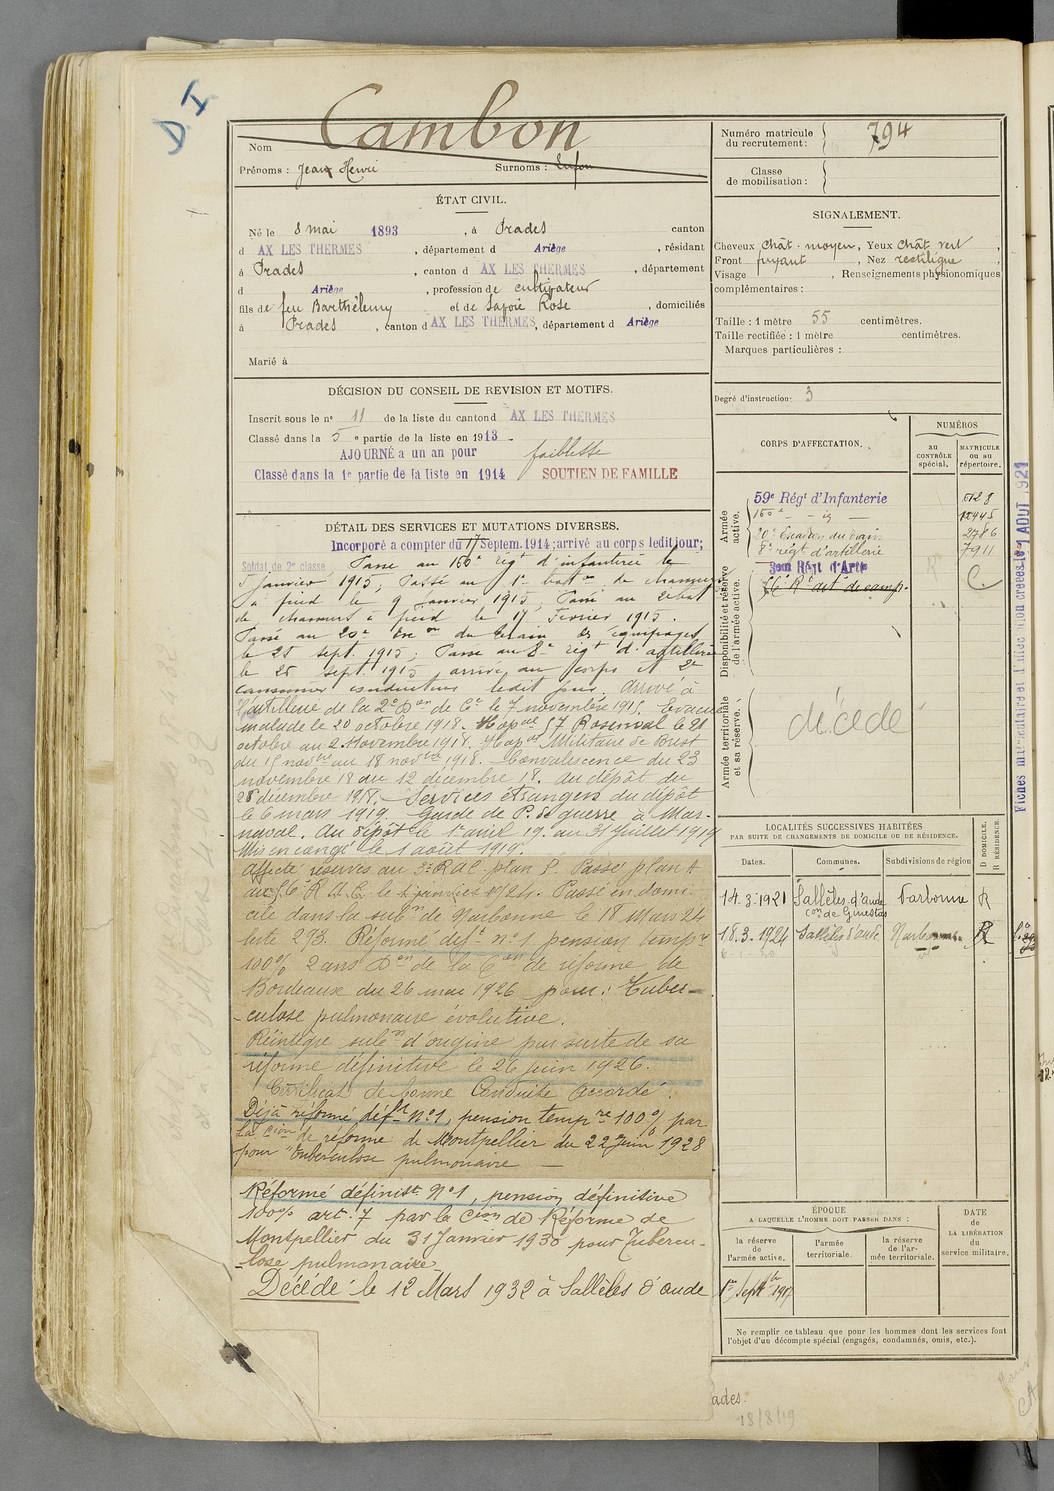 D I
Cambon
Nom
Prénoms : Jean Henri Surnoms :
ÉTAT CIVIL.
Né le 8 mai 1893, à Prades canton
d AX LES THERMES, département d Ariège, résidant
à Prades, canton d AX LES THERMES, département
d Ariège, profession de cultivateur
fils de feu Barthélemy et de Rose, domiciliés
à Prades, canton d AX LES THERMES, département d Ariège
Marié à
DÉCISION DU CONSEIL DE REVISION ET MOTIFS.
Inscrit sous le n° 11 de la liste du canton d AX LES THERMES
Classé dans la 5 e partie de la liste en 1913
AJOURNÉ a un an pour faiblesse
Classé dans la 1e partie de la liste en 1914 SOUTIEN DE FAMILLE
DÉTAIL DES SERVICES ET MUTATIONS DIVERSES.
Incorporé a compter du 17 Septem. 1914; arrivé au corps ledit jour;
Soldat de 2e classe Passé au 160e régt d'infanterie le
5 janvier 1915, Passé au 1er batton de chasseurs
à pied le 9 janvier 1915, Passé au 2e bat
de chasseurs à pied le 17 Février 1915.
Passé au 20e Eson du train des équipages
le 25 sept. 1915; Passé au 8e régt d'artillerie
le 25 sept. 1915 arrivé au corps et 2e
canonnier conducteur ledit jour. Arrivé à
l'artillerie de la 2e Don de Cie le 7 novembre 1915. Evacué
malade le 20 octobre 1918. Hopal 57 Rosenval le 21
octobre au 2 Novembre 1918. Hopal Militaire de Brest
du 15 novbre au 18 novbre 1918. Convalescence du 23
novembre 18 au 12 décembre 18. au dépôt du
28 décembre 1918. Services étrangers du dépôt
le 6 mars 1919. Garde de P. de guerre à Mar-
naval. Au dépôt le 1er avril 19. au 31 juillet 1919
Mis en congé le 1 août 1919.
Affecté réserves au 3e R A C plan S Passé plan A
au 56e R. A. C. le 1 janvier 1924. Passé en domi-
cile dans la subon de Narbonne le 18 Mars 24
liste 293. Réformé déft n°1 pension tempre
100% 2 ans Don de la Con de réforme de
Bordeaux du 26 mai 1926 pour: Tuber-
-culose pulmonaire évolutive.
Réintègre subon d'origine par suite de sa
réforme définitive le 26 juin 1926.
Certificat de bonne Conduite accordé.
Déjà réformé déft N°1, pension tempre 100% par
la Cion de réforme de Montpellier du 22 Juin 1928
pour "Tuberculose pulmonaire
Réformé définitt N°1, pension définitive
100% art. 7 par la Cion de Réforme de
Montpellier du 31 Janvier 1930 pour Tubercu-
-lose pulmonaire
Décédé le 12 Mars 1932 à Sallèles d'aude
Numéro matricule
du recrutement : 794
Classe
de mobilisation :
SIGNALEMENT.
Cheveux chât. moyen, Yeux chât vert,
Front fuyant, Nez rectiligne,
Visage , Renseignements physionomiques
complémentaires :
Taille : 1 mètre 55 centimètres.
Taille rectifiée : 1 mètre centimètres.
Marques particulières :
Degré d'instruction : 3
CORPS D'AFFECTATION.
NUMÉROS
au CONTRÔLE spécial.
MATRICULE ou au répertoire.
Armée active.
59e Régt d'Infanterie 5128
160e - - ig - 12445
20e Escadron du train 2786
8e régt d'artillerie 7911
Disponibilité et réserve de l'armée active.
3eme Régt d'Artie
56e Rt art. de camp. C.
Armée territoriale et sa réserve.
décédé
LOCALITÉS SUCCESSIVES HABITÉES
PAR SUITE DE CHANGEMENTS DE DOMICILE OU DE RÉSIDENCE.
Dates. Communes. Subdivisions de région D DOMICILE. R RÉSIDENCE.
14.3.1921 Sallèles d'aude Narbonne R
con de Ginestas
18.3.1924 Sallèles d'aude Narbonne R
ÉPOQUE
A LAQUELLE L'HOMME DOIT PASSER DANS :
la réserve de l'armée active.
l'armée territoriale.
la réserve de l'armée territoriale.
DATE de LA LIBÉRATION du service militaire.
1er Septbre 1917
Ne remplir ce tableau que pour les hommes dont les services font
l'objet d'un décompte spécial (engagés, condamnés, omis, etc.).
ades.
18/8/19